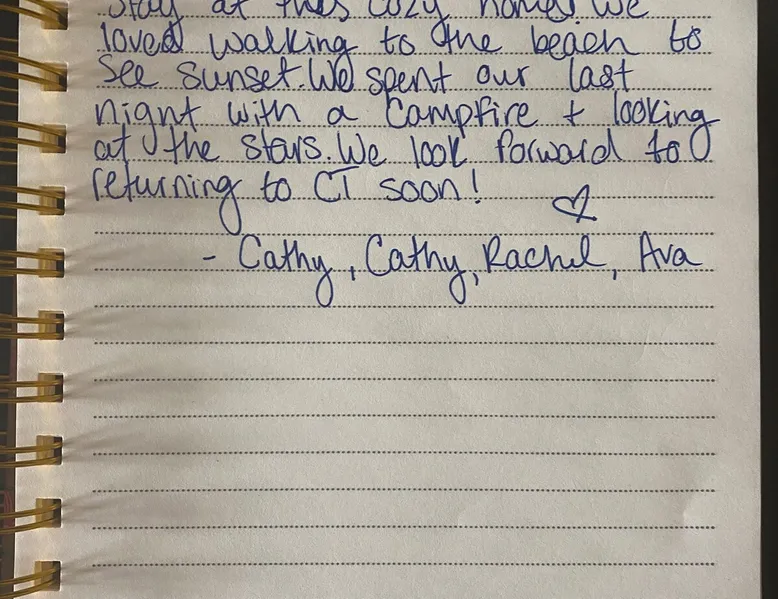 stay at this cozy home. We
loved walking to the beach to
see sunset. We spent our last
night with a campfire + looking
at the stars. We look forward to
returning to CT soon!
- Cathy, Cathy, Rachel, Ava